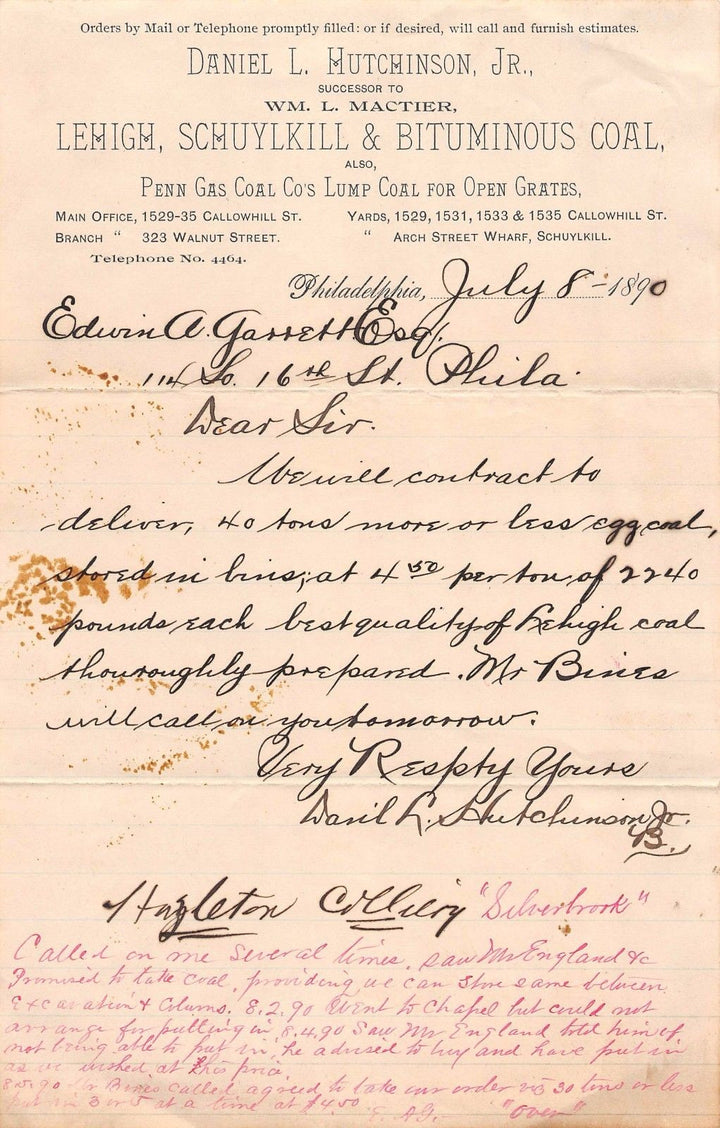 Orders by Mail or Telephone promptly filled: or if desired, will call and furnish estimates.
DANIEL L. HUTCHINSON, JR.,
SUCCESSOR TO
WM. L. MACTIER,
LEHIGH, SCHUYLKILL & BITUMINOUS COAL,
ALSO,
PENN GAS COAL CO'S LUMP COAL FOR OPEN GRATES,
MAIN OFFICE, 1529-35 CALLOWHILL ST. YARDS, 1529, 1531, 1533 & 1535 CALLOWHILL ST.
BRANCH " 323 WALNUT STREET. " ARCH STREET WHARF, SCHUYLKILL.
Telephone No. 4464.
Philadelphia, July 8 - 1890
Edwin A. Garrett Esq.
114 So. 16th St. Phila.
Dear Sir.
We will contract to
deliver, 40 tons more or less egg coal,
stored in bins, at 4 50 per ton of 2240
pounds each best quality of Lehigh coal
thouroughly prepared. Mr Bines
will call on you tomorrow.
Very Respty Yours
Danil L. Hutchinson Jr.
B.
Hazleton Colliery "Silverbrook"
Called on me several times. Saw Mr England &c
Promised to take coal, providing we can store same between
Excavation & Colums. 8.2.90 Went to Chapel but could not
arrange for putting in. 8.4.90 Saw Mr England told him of
not being able to put in, he advised to buy and have put in
as we wished at this price.
8.5.90 Mr Bines called agreed to take our order 30 tons or less
put in 3 or 5 at a time at $4.50 E. A. G. "over"